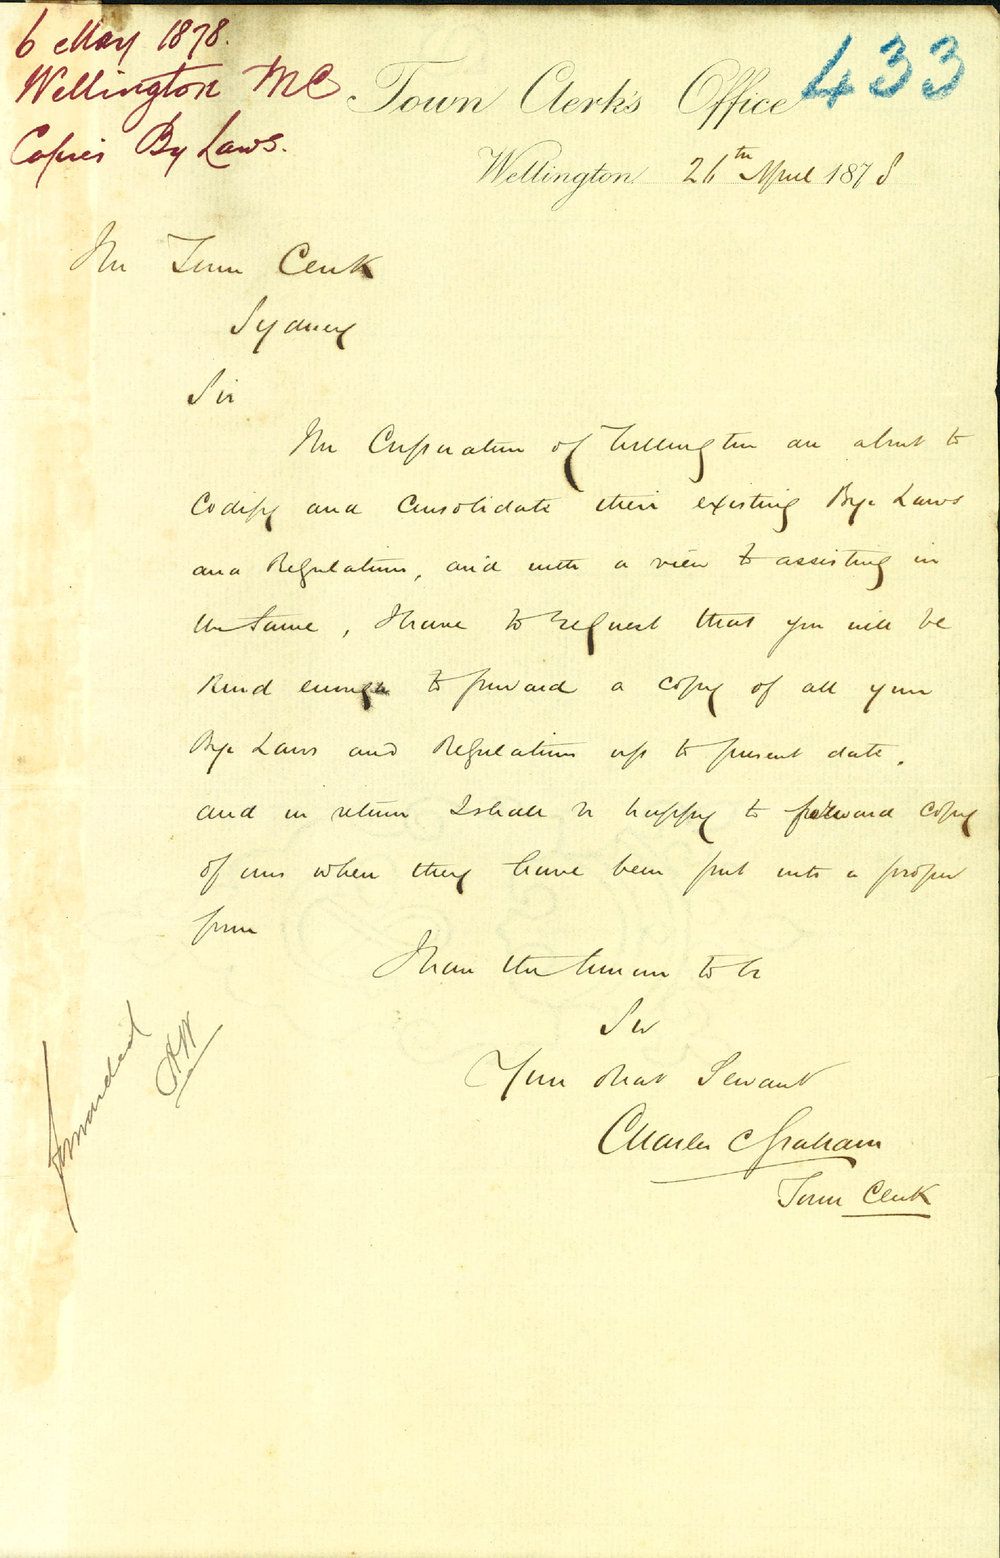 6 May 1878.
Wellington MC
Copies By Laws.
433
Town Clerk's Office
Wellington 26th April 1878
The Town Clerk
Sydney
Sir
The Corporation of Wellington are about to
Codify and Consolidate their existing Bye Laws
and Regulations, and with a view to assisting in
the same, I have to request that you will be
kind enough to forward a copy of all your
Bye Laws and Regulations up to present date,
and in return I shall be happy to forward copy
of ours when they have been put into a proper
form
I have the honour to be
Sir
Your obdt Servant
Charles C Graham
Town Clerk
Forwarded